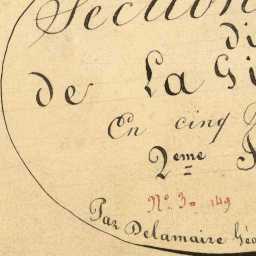 Section
di
de La Gi
En cinq
2eme
N° 3 149
Par Delamaire Géo